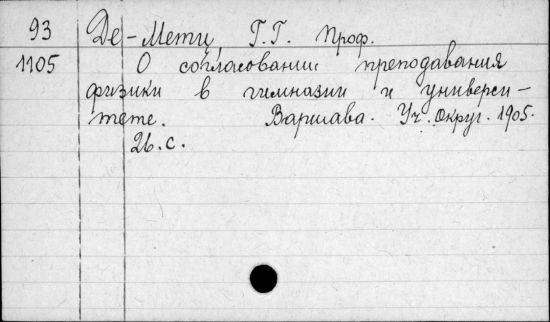 93 Де-Метц Г.Г. Проф.
1105 О согласовании преподавания
физики в гимназии и универси-
тете. Варшава. Уч. Округ. 1905.
26.с.